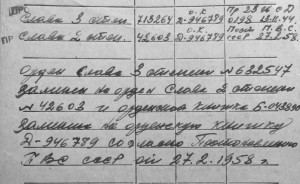 Слава 3 степ. 713264 о.к. Д-946789 Пр 23 СКД 0198 13.11.44
ПР Слава 2 степ. 42603 о.к. Д-946789 Пост. П.В.С. СССР 27.2.58
Орден Слава 3 степени № 632547
заменен на орден Слава 2 степени
№ 42603 и орденская книжка Б-
заменена на орденскую книжку
Д-946789 согласно Постановлению
ПВС СССР от 27.2.1958 г.